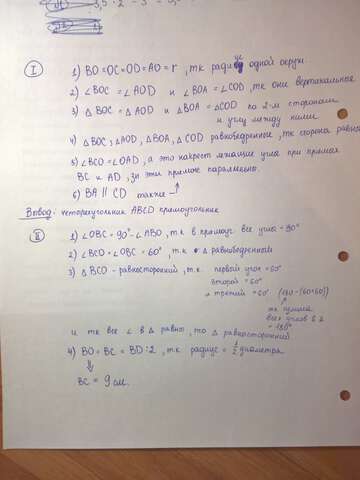 I 1) BO = OC = OD = AO = r, тк радиусы одной окруж.
2) ∠BOC = ∠AOD и ∠BOA = ∠COD, тк они вертикальные
3) △BOC = △AOD и △BOA = △COD по 2-м сторонам
и углу между ними
4) △BOC, △AOD, △BOA, △COD равнобедренные, тк стороны равны
5) ∠BCO = ∠OAD, а это накрест лежащие углы при прямых
BC и AD, зн эти прямые параллельны.
6) BA || CD также
Вывод - четырехугольник ABCD прямоугольник
II 1) ∠OBC = 90° - ∠ABO, т.к в прямоуг. все углы = 90°
2) ∠BCO = ∠OBC = 60°, т.к △ равнобедренный
3) △BCO - равносторонний, т.к. первый угол = 60°
второй = 60°
третий = 60° (180-(60+60))
тк сумма
всех углов в △
= 180°
и тк все ∠ в △ равны, то △ равносторонний
4) BO = BC = BD : 2, т.к радиус = 1/2 диаметра
⇓
BC = 9 см.